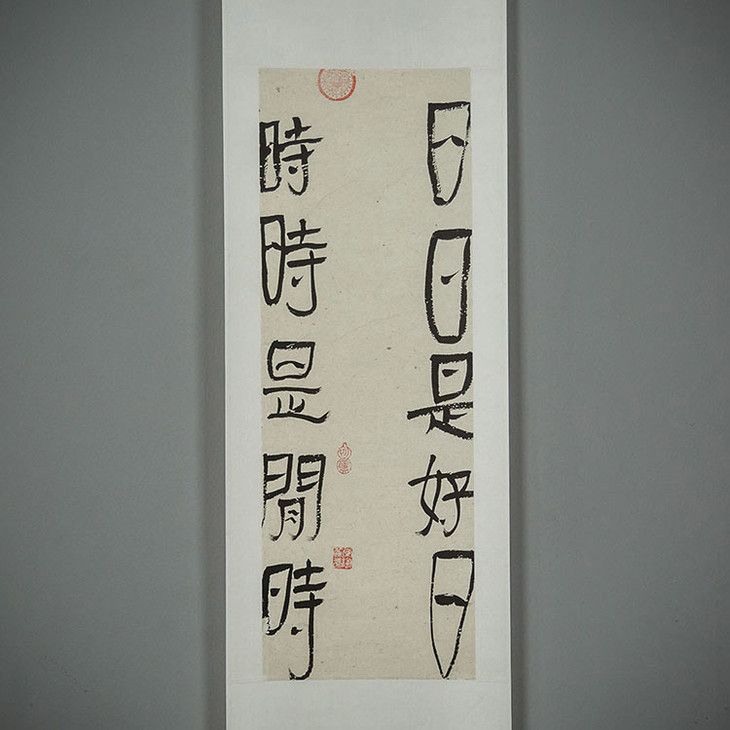 日日是好日
時時是閒時